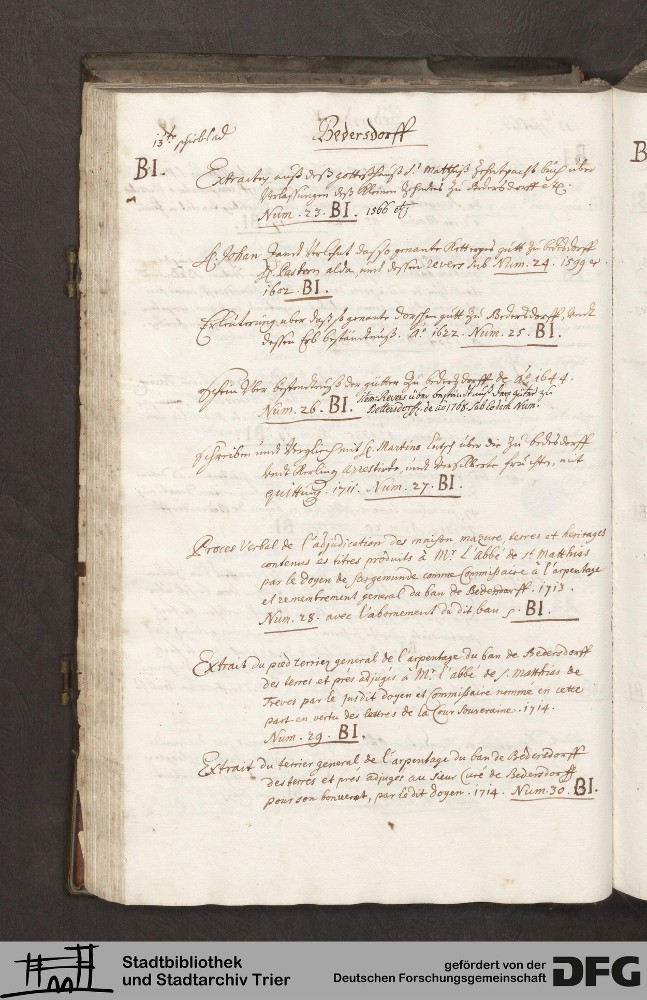 13te schiblad
Bedersdorff
BI.
Extracten auß deß gottshauß St. Matthiß Zehntpacht buch über
Verlassungen deß kleinen Zehnden zu Bedersdorff etc.
Num. 23. BI. 1566 etc
H. Johan Zandt Verlehnt das so genante gutt zu bedersdorff
H. Pastorn alda, mit dessen revers sub Num. 24. 1599 et
1602. BI.
Erleüterung über daß so genante gutt zu Bedersdorff, undt
dessen Erb beständtnuß. Ao 1622. Num. 25. BI.
Schein über beständtnuß der gütter zu bedersdorff de Ao 1644.
Num. 26. BI. Item Revers über beständtnuß dasiger güter zu
Bedersdorff de ao 1768 sub eodem Num.
Schreiben und Verglich mit H. Martino über die zu bedersdorff
undt Kerling arrestirte, und versilberte früchten, mit
quittung. 1711. Num. 27. BI.
Proces Verbal de l'adjudication des maison mazure, terres et heritages
contenus es titres produits à Mr. l'Abbé de st Matthias
par le Doyen de sargemunde comme Commissaire à l'arpentage
et remembrement general du ban de Bedersdorff. 1713.
Num. 28. avec l'abornement du dit ban BI.
Extrait du pied terrier general de l'arpentage du ban de Bedersdorff
des terres et prés adjugés à Mr. l'abbé de S. Matthias de
Treves par le susdit doyen et Commissaire nommé en cette
part en vertu des lettres de la Cour Souveraine. 1714.
Num. 29. BI.
Extrait du terrier general de l'arpentage du ban de Bedersdorff
des terres et prés adjugés au sieur Curé de Bedersdorff
pour son bouverot, par le dit Doyen. 1714. Num. 30. BI.
B
Stadtbibliothek
und Stadtarchiv Trier
gefördert von der
Deutschen Forschungsgemeinschaft
DFG